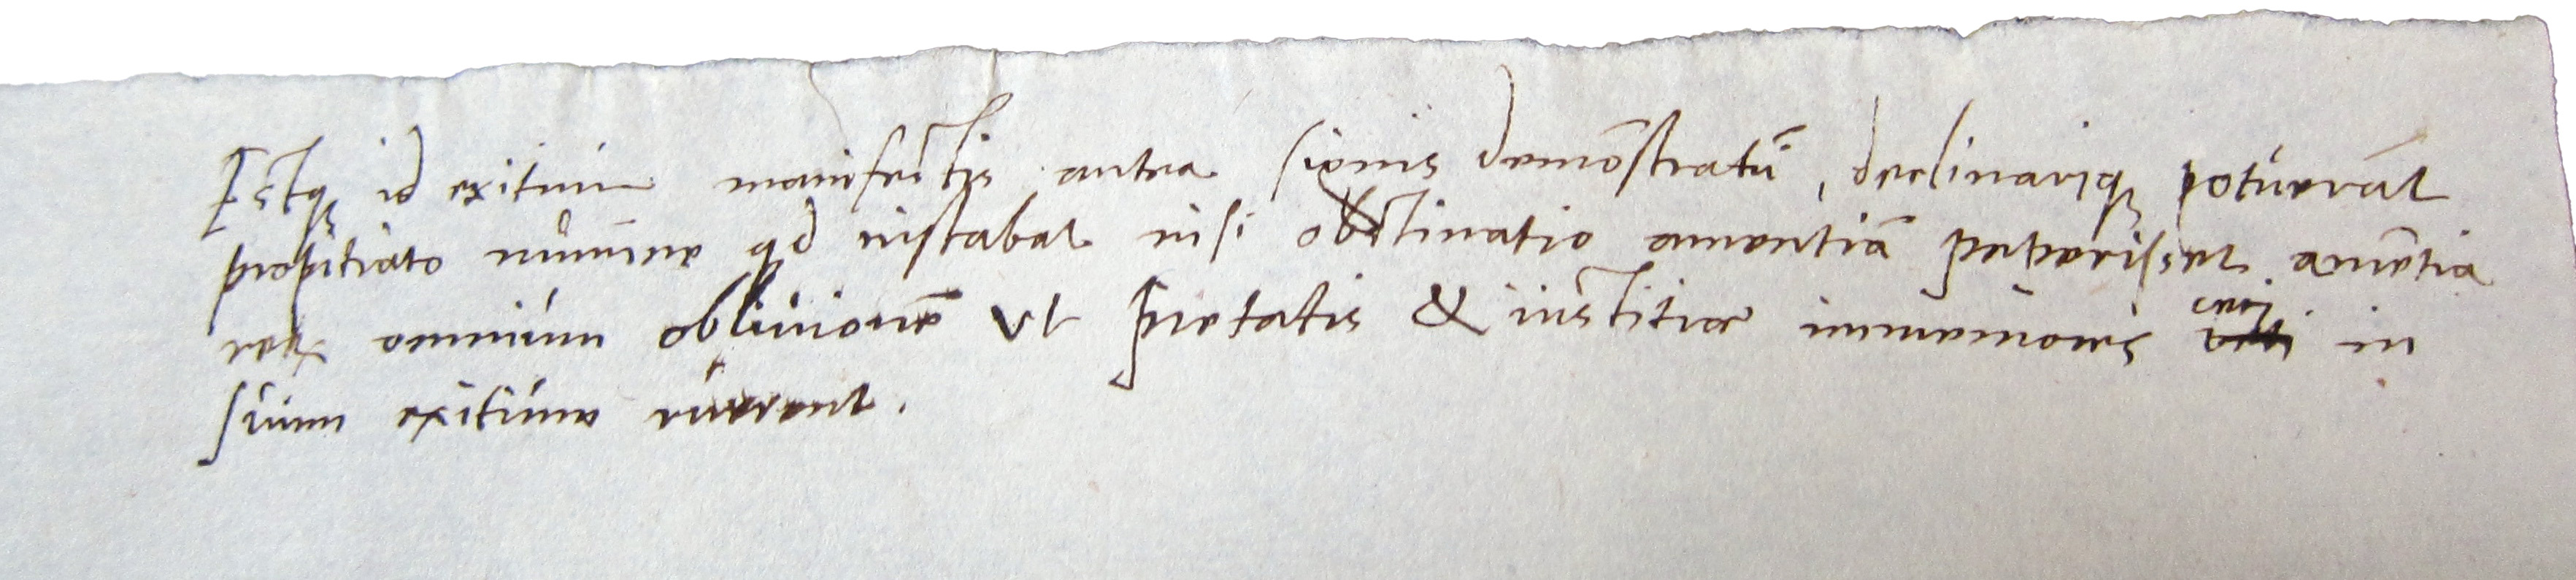 Estq₃ id exitium manifestis antea signis demōstratū, declinariq₃ potuerat
propitiato numine qd instabat nisi obstinatio amentiā peperisset amētia
uer omnium obliuionē vt pietatis & iustitiæ immemores in
suum exitium ruerent.